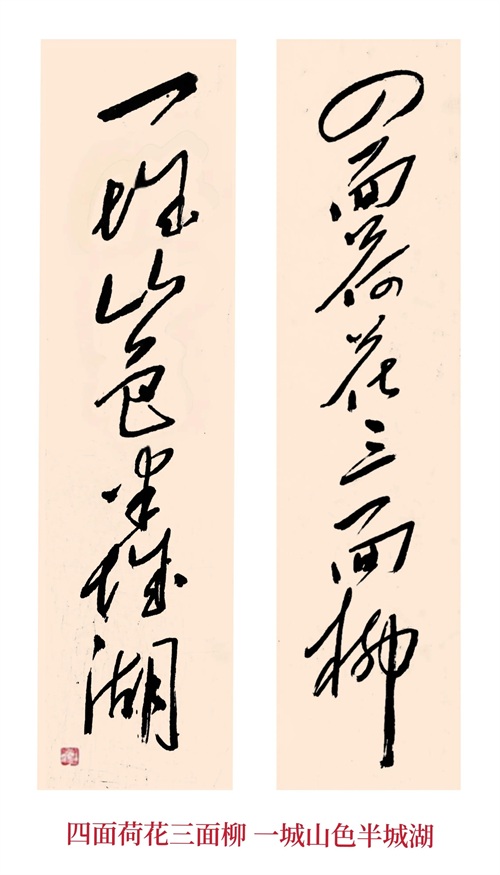 四面荷花三面柳
一城山色半城湖
四面荷花三面柳 一城山色半城湖